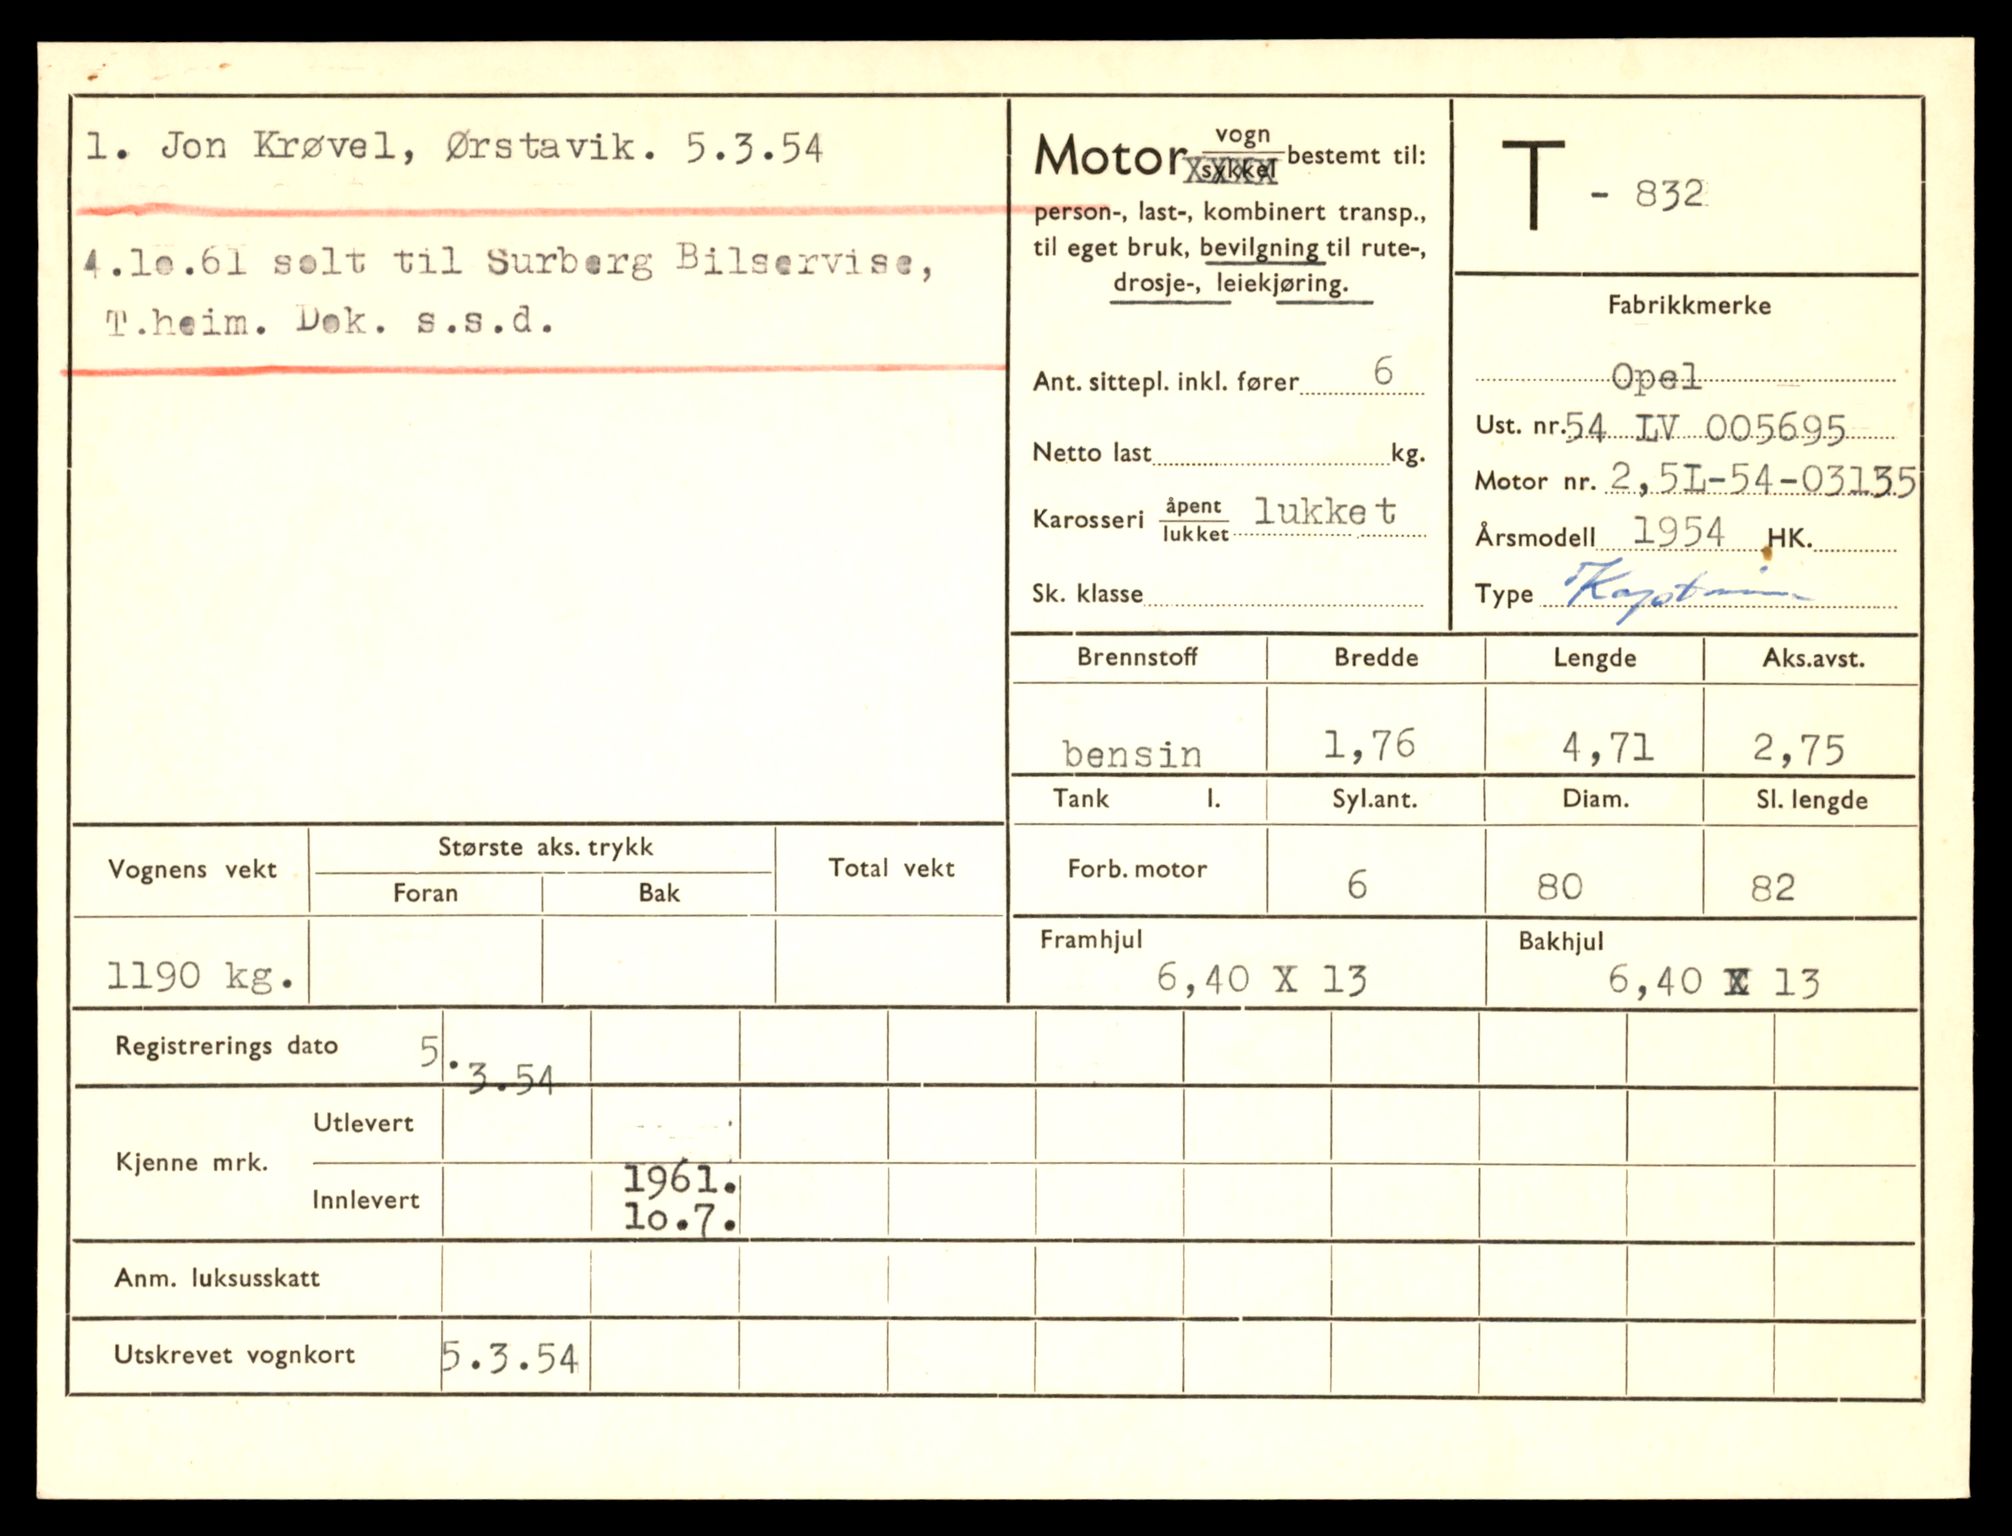 1. Jon Krøvel, Ørstavik. 5.3.54
4.1o.61 solt til Surberg Bilservise,
T.heim. Dok. s.s.d.
Motor vogn
sykkel bestemt til:
person-, last-, kombinert transp.,
til eget bruk, bevilgning til rute-,
drosje-, leiekjøring.
Ant. sittepl. inkl. fører 6
Netto last kg.
Karosseri åpent
lukket lukket
Sk. klasse
T - 832
Fabrikkmerke
Opel
Ust. nr. 54 LV 005695
Motor nr. 2,5L-54-03135
Årsmodell 1954 HK.
Type
Brennstoff Bredde Lengde Aks.avst.
bensin 1,76 4,71 2,75
Tank l. Syl.ant. Diam. Sl. lengde
Forb. motor 6 80 82
Framhjul Bakhjul
6,40 X 13 6,40 X 13
Vognens vekt Største aks. trykk Total vekt
Foran Bak
1190 kg.
Registrerings dato 5.3.54
Kjenne mrk. Utlevert
Innlevert 1961.
1o.7.
Anm. luksusskatt
Utskrevet vognkort 5.3.54